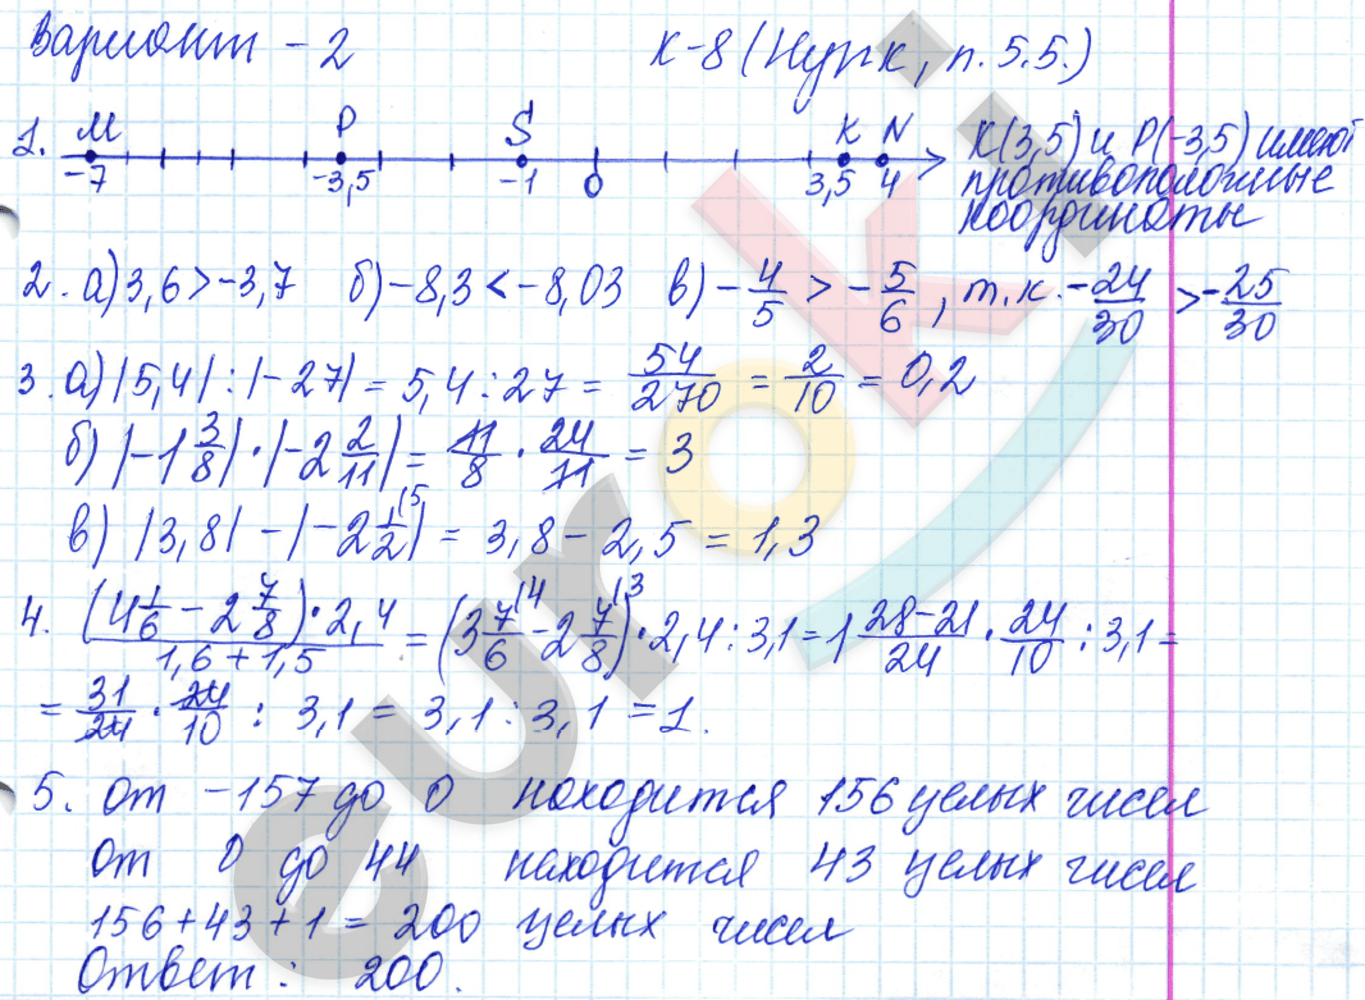 Вариант - 2 К-8 (Нурк, п. 5.5.)
1. M P S K N
-7 -3,5 -1 0 3,5 4
K(3,5) и P(-3,5) имеют
противоположные
координаты
2. а) 3,6 > -3,7 б) -8,3 < -8,03 в) -4/5 > -5/6, т.к. -24/30 > -25/30
3. а) |5,4| : |-27| = 5,4 : 27 = 54/270 = 2/10 = 0,2
б) |-1 3/8| · |-2 2/11| = 11/8 · 24/11 = 3
в) |3,8| - |-2 1/2 ⁽⁵| = 3,8 - 2,5 = 1,3
4. (4 1/6 - 2 7/8) · 2,4 / 1,6 + 1,5 = (3 7/6 ⁽⁴ - 2 7/8 ⁽³) · 2,4 : 3,1 = 1 28-21/24 · 24/10 : 3,1 =
= 31/24 · 24/10 : 3,1 = 3,1 : 3,1 = 1.
5. От -157 до 0 находится 156 целых чисел
От 0 до 44 находится 43 целых чисел
156 + 43 + 1 = 200 целых чисел
Ответ: 200.
euroki